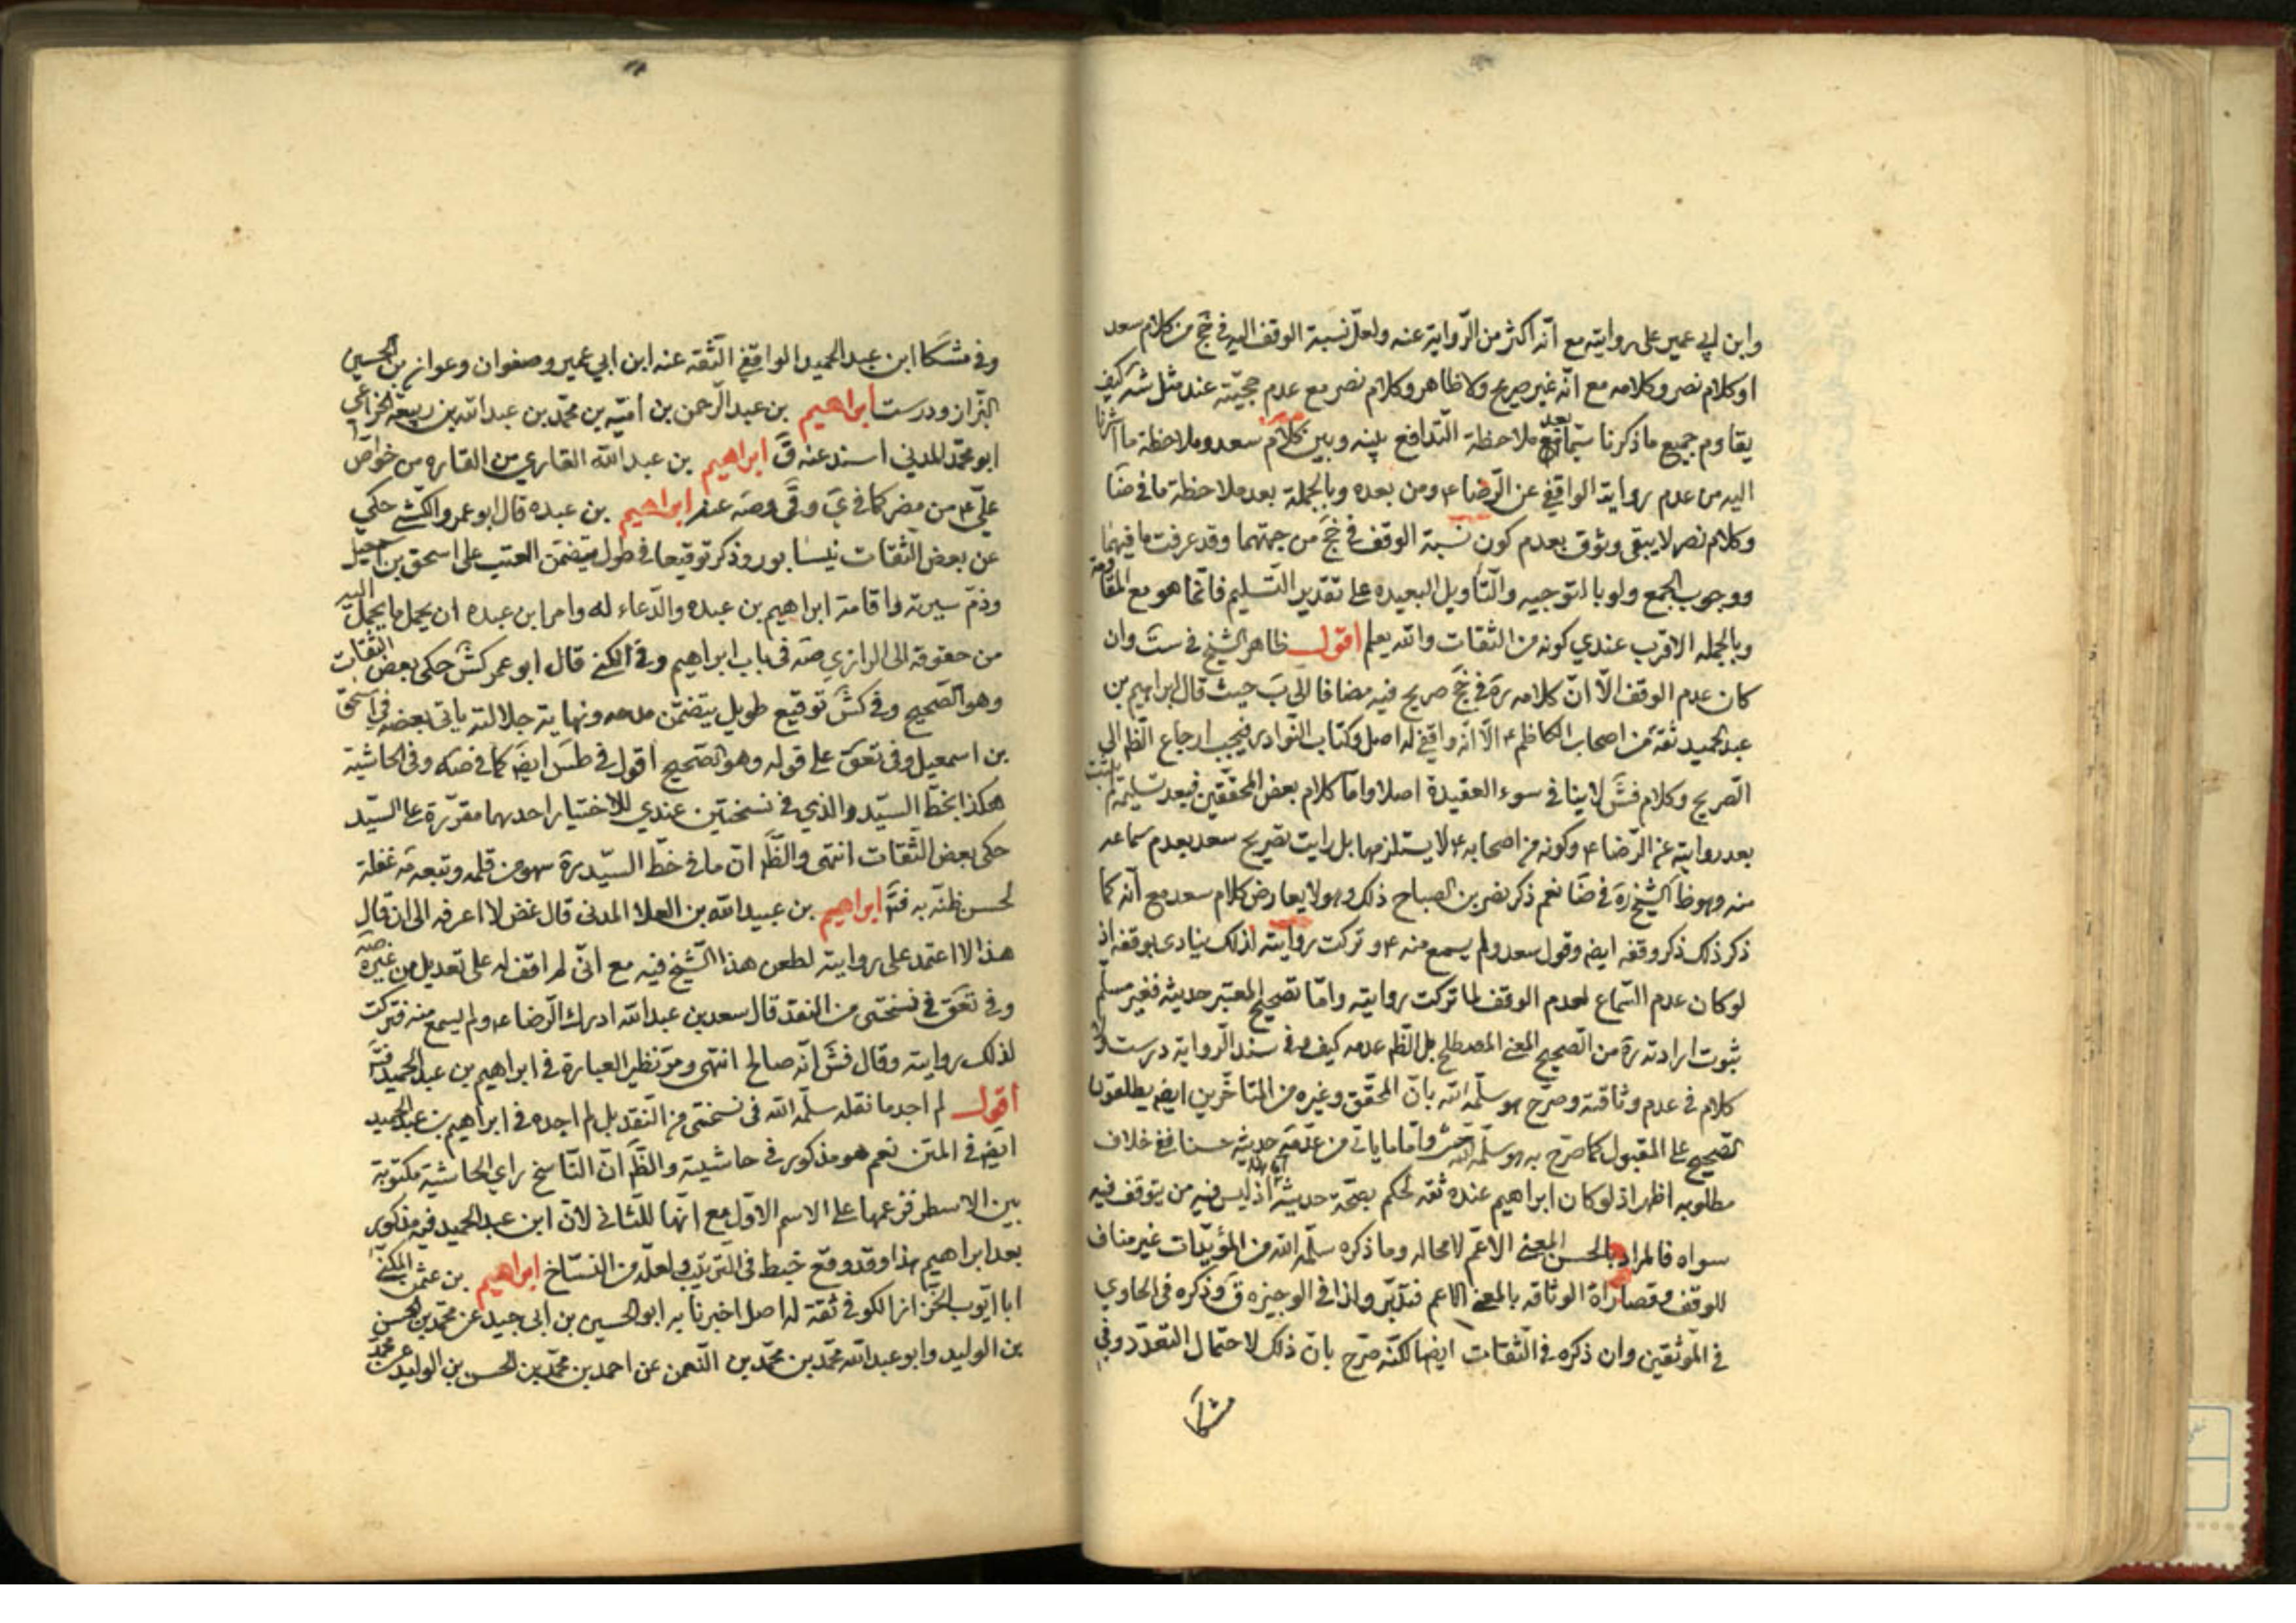 وابن ابي عمير على روايته مع انّه اكثر من الرّواية عنه ولعلّ نسبة الوقف اليه في جخ من كلام سعد
او كلام نصر وكلامه مع انّه غير صريح ولا ظاهر وكلام نصر مع عدم حجيّته عند مثل شه كيف
يقاوم جميع ما ذكرنا سيّما بعد ملاحظة التّدافع بينه وبين كلام سعد وملاحظة ما اشرنا
اليه من عدم رواية الواقفي عن الرّضا ع ومن بعده وبالجملة بعد ملاحظة ما في ضا
وكلام نصر لا يبقى وثوق بعدم كون نسبة الوقف في جخ من جهتهما وقد عرفت ما فيهما
ووجوب الجمع ولو بالتوجيه والتّأويل البعيده على تقدير التّسليم فانّما هو مع المقاومة
وبالجمله الاقرب عندي كونه من الثقات والله يعلم اقول ظاهر الشيخ في ست وان
كان عدم الوقف الّا انّ كلامه ره في جخ صريح فيه مضافا الى ب حيث قال ابراهيم بن
عبد الحميد ثقة من اصحاب الكاظم ع الّا انّه واقفي له اصل وكتاب النّوادر فيجب ارجاع الظم الى
الصّريح وكلام فش لا ينافي سوء العقيدة اصلا وامّا كلام بعض المحققين فبعد تسليمه لم يثبت
بعد روايته عن الرّضا ع وكونه من اصحابه ع لا يستلزمها بل رايت تصريح سعد بعدم سماعه
منه وهو ظ الشّيخ ره في ضا نعم ذكر نصر بن الصباح ذلك وهو لا يعارض كلام سعد مع انّه كما
ذكر ذلك ذكر وقفه ايضه وقول سعد ولم يسمع منه ع وتركت روايته لذلك ينادى بوقفه اذ
لو كان عدم السّماع لعدم الوقف لما تركت روايته وامّا تصحيح المعتبر حديثه فغير مسلّم
ثبوت ارادته ره من الصّحيح المعنى المصطلح بل الظم عدمه كيف وفي سند الرّواية درست ولا
كلام في عدم وثاقته وصرّح هو سلّمه الله بانّ المحقّق وغيره من المتاخّرين ايضه يطلقون
الصّحيح على المقبول كما صرّح به هو سلّمه الله وامّا ما ياتي من عدّ مه حديثه حسنا ففي خلاف
مطلوبه اظهر اذ لو كان ابراهيم عنده ثقه لحكم بصحّة حديثه اذ ليس فيه من يتوقف فيه
سواه فالمراد بالحسن المعنى الاعّم لا محاله وما ذكره سلّمه الله من المؤيّدات غير مناف
للوقف وقصاراة الوثاقه بالمعنى الاعم فتدبّر ولذا في الوجيزه ق وذكره في الحاوي
في الموثقين وان ذكره في الثّقات ايضا لكنّه صرّح بانّ ذلك لاحتمال التعدّد وفي
مشكا
وفي مشكا ابن عبد الحميد الواقفي الثّقه عنه ابن ابي عمير وصفوان وعوانة بن الحسين
البزّاز ودرست ابراهيم بن عبد الرّحمن بن اميّه بن محمّد بن عبد الله بن ربيعة الخزاعي
ابو محمّد المدني اسند عنه ق ابراهيم بن عبد الله القاري من القاره من خواصّ
عليّ ع من مضر كما في ي وقى وصه عنه ابراهيم بن عبده قال ابو عمرو الكشي حكى
عن بعض الثّقات نيسابور وذكر توقيعا في طول يتضمّن العتب على اسحق بن اسمعيل
وذمّ سيرته واقامة ابراهيم بن عبده والدّعاء له وامر ابن عبده ان يحمل ما يحمل اليه
من حقوقه الى الرازي صه في باب ابراهيم وفي الكنى قال ابو عمر كش حكى بعض الثقات
وهو الصّحيح وفي كش توقيع طويل يتضمّن مدحه ونهاية جلالته ياتي بعضه في اسحق
بن اسمعيل وفي تعق على قوله وهو الصّحيح اقول في طس ايضه كما في صه وفي الحاشية
هكذا بخطّ السيّد والذي في نسختين عندي للاختيار احديهما مقرّرة على السيّد
حكى بعض الثّقات انتهى والظّم انّ ما في خطّ السيّد ره سهو من قلمه وتبعه مه غفلة
لحسن ظنّه به فتم ابراهيم بن عبيد الله بن العلا المدنى قال غض لا اعرفه الى ان قال
هذا لا اعتمد على روايته لطعن هذا الشّيخ فيه مع انّى لم اقف له على تعديل من غيره صه
وفي تعق في نسختى من النقد قال سعد بن عبد الله ادرك الرّضا ع ولم يسمع منه فتركت
لذلك روايته وقال فش انّه صالح انتهى ومرّ نظير العبارة في ابراهيم بن عبد الحميد فتم
اقول لم اجد ما نقله سلّمه الله في نسختى من النّقد بل لم اجده في ابراهيم بن عبد الحميد
ايضه في المتن نعم هو مذكور في حاشيته والظّم انّ النّاسخ راى الحاشية مكتوبة
بين الاسطر فزعمها على الاسم الاوّل مع انّها للثّاني لانّ ابن عبد الحميد فيه مذكور
بعد ابراهيم هذا وقد وقع خبط في التّرتيب ولعلّه من النسّاخ ابراهيم بن عثمن المكنّى
ابا ايّوب الخزّاز الكوفي ثقة له اصل اخبرنا به ابو الحسين بن ابى جيد عن محمّد بن الحسن
بن الوليد وابو عبد الله محمّد بن محمّد بن النّعمن عن احمد بن محمّد بن الحسن بن الوليد عن محمّد